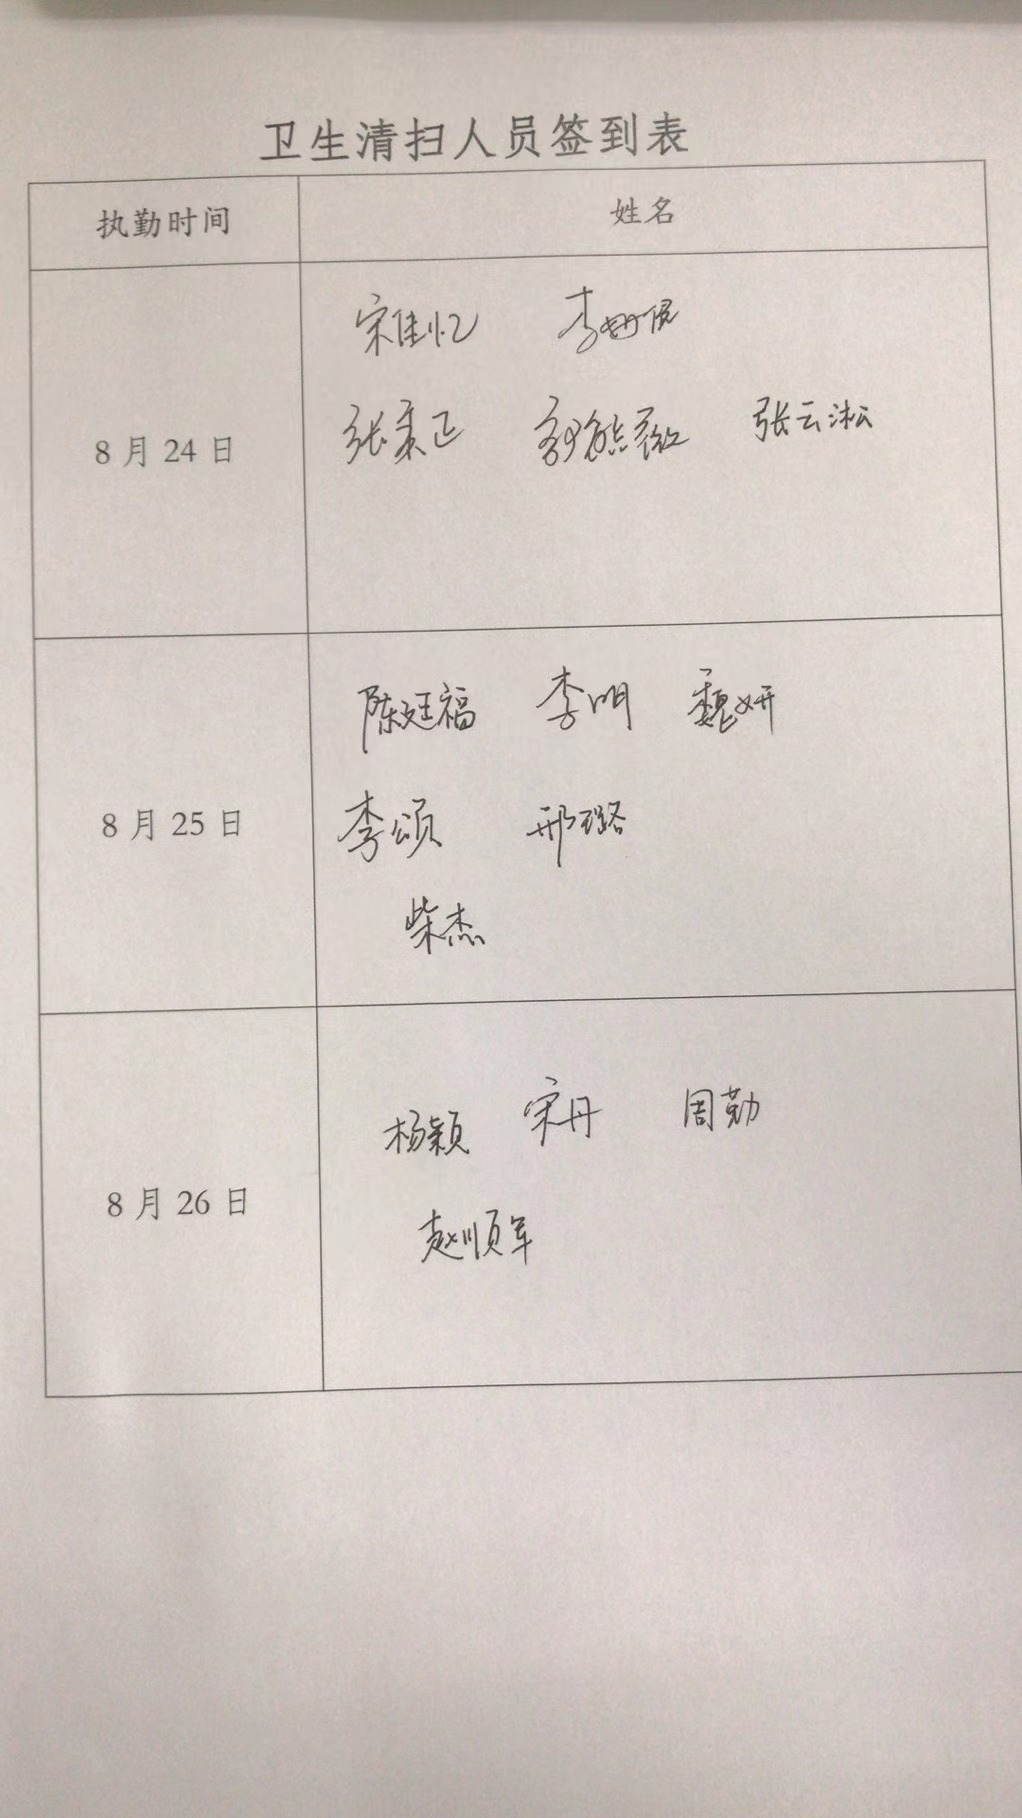 卫生清扫人员签到表
执勤时间 姓名
宋佳忆
张秉正 张云淞
8月24日
陈廷福 李明 魏妍
8月25日
李颂 邢璐
柴杰
杨颖 宋丹 周勤
8月26日
赵顺军